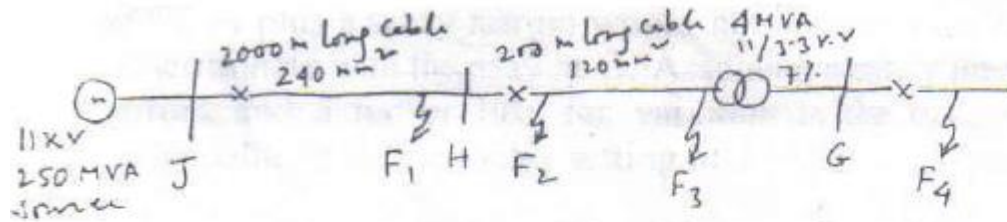 2000 m long cable
240 mm²
200 m long cable
120 mm²
4 MVA
11/3.3 K.V
7%
~
11 KV
250 MVA
source
J
F1
H
F2
F3
G
F4